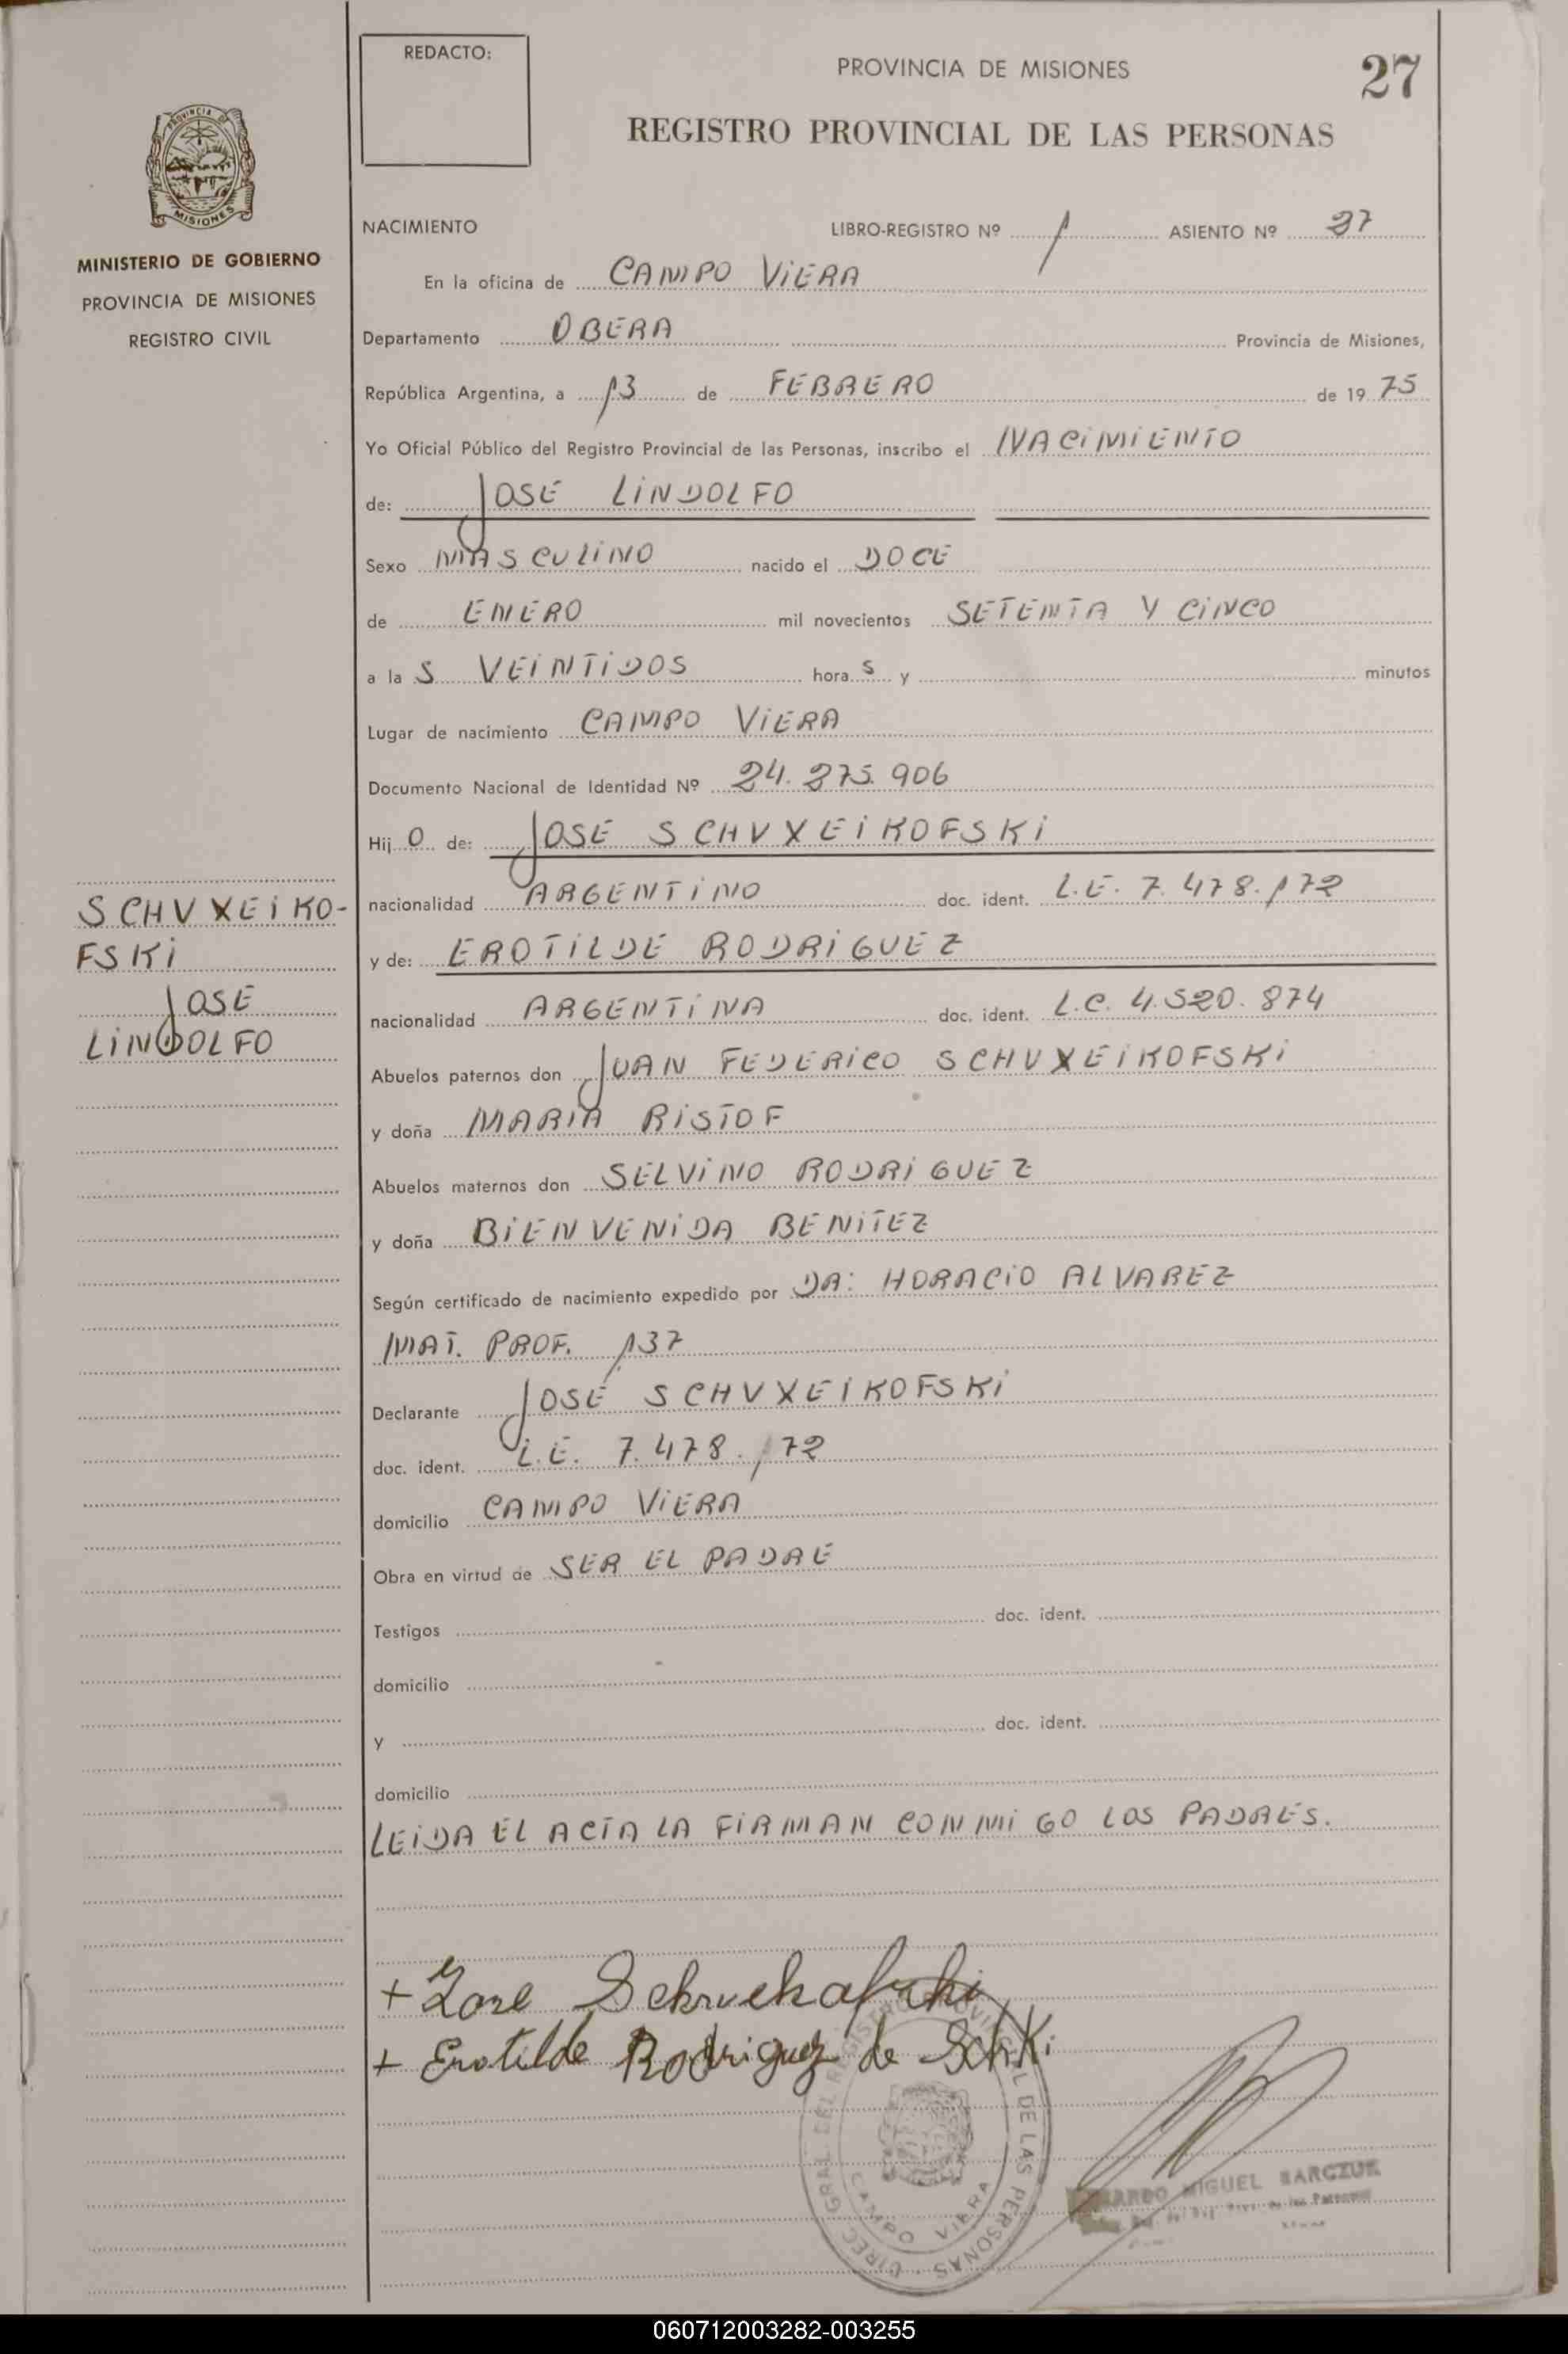 REDACTO:
PROVINCIA DE MISIONES
27
REGISTRO PROVINCIAL DE LAS PERSONAS
PROVINCIA DE
MISIONES
MINISTERIO DE GOBIERNO
PROVINCIA DE MISIONES
REGISTRO CIVIL
NACIMIENTO LIBRO-REGISTRO Nº 1 ASIENTO Nº 27
En la oficina de CAMPO VIERA
Departamento OBERA Provincia de Misiones,
República Argentina, a 13 de FEBRERO de 19 75
Yo Oficial Público del Registro Provincial de las Personas, inscribo el NACIMIENTO
de: JOSE LINDOLFO
Sexo MASCULINO nacido el DOCE
de ENERO mil novecientos SETENTA Y CINCO
a la S VEINTIDOS hora S y minutos
Lugar de nacimiento CAMPO VIERA
Documento Nacional de Identidad Nº 24.275.906
Hij O de: JOSE SCHVXEIKOFSKI
nacionalidad ARGENTINO doc. ident. L.E. 7.478.172
y de: EROTILDE RODRIGUEZ
nacionalidad ARGENTINA doc. ident. L.C. 4.520.874
Abuelos paternos don JUAN FEDERICO SCHVXEIKOFSKI
y doña MARIA RISTOF
Abuelos maternos don SELVINO RODRIGUEZ
y doña BIENVENIDA BENITEZ
Según certificado de nacimiento expedido por DR: HORACIO ALVAREZ
MAT. PROF. 137
Declarante JOSE SCHVXEIKOFSKI
doc. ident. L.E. 7.478.172
domicilio CAMPO VIERA
Obra en virtud de SER EL PADRE
Testigos doc. ident.
domicilio
y doc. ident.
domicilio
LEIDA EL ACTA LA FIRMAN CONMIGO LOS PADRES.
SCHVXEIKO-
FSKI
JOSE
LINDOLFO
+ Jose
+ Erotilde Rodriguez de SchKi
DIREC GRAL DEL REGISTRO PROVINCIAL DE LAS PERSONAS
CAMPO VIERA
MIGUEL BARCZUK
060712003282-003255